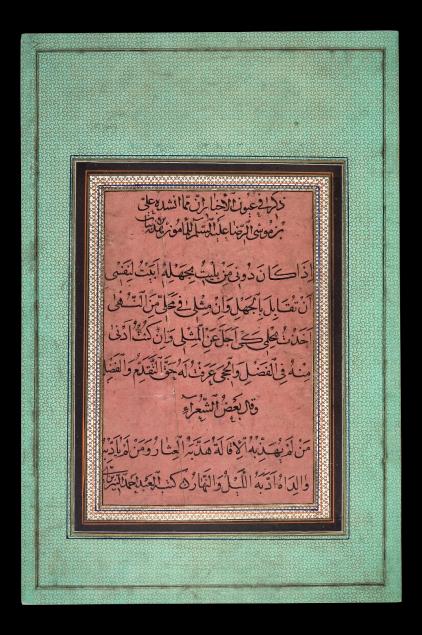 ذكر في عيون الأخبار ان مما انشده علي
بن موسى الرضا عليه السلم للمامون
اِذا كانَ دُوني مَنْ بُليتُ بِجَهْلِهِ اَبَيْتُ لِنَفْسي
اَنْ تُقابِلَ بِالجَهْلِ وَاِنْ مِثْلي في مَحَلّي مِنَ النُّهى
اَخَذْتُ بِحِلْمي كَيْ اَجَلَّ عَنِ المِثْلِ وَاِنْ كُنْتُ اَدْنى
مِنْهُ فِي الفَضْلِ وَالحِجى عَرَفْتُ لَهُ حَقَّ التَّقَدُّمِ وَالفَضْلِ
وقالَ بَعْضُ الشُّعَراءِ
مَنْ لَمْ يُهَذِّبْهُ الاِقالَةُ هَذَّبَهُ العِثارُ وَمَنْ لَمْ يُؤَدِّبْهُ
والِداهُ اَدَّبَهُ اللَّيْلُ وَالنَّهارُ كتبه العبد احمد النيريزي